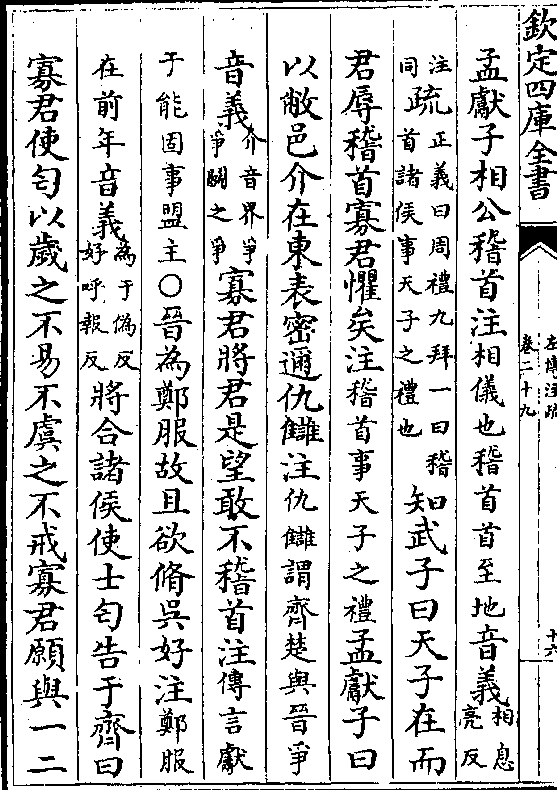 欽定四庫全書
左傳注疏
卷二十九
十六
孟獻子相公稽首注相儀也稽首首至地音義相息亮反
注同疏正義曰周禮九拜一曰稽首諸侯事天子之禮也知武子曰天子在而
君辱稽首寡君懼矣注稽首事天子之禮孟獻子曰
以敝邑介在東表密邇仇讎注仇讎謂齊楚與晉爭
音義介音界爭爭鬭之爭寡君將君是望敢不稽首注傳言獻
于能固事盟主○晉為鄭服故且欲脩吳好注鄭服
在前年音義為于偽反好呼報反將合諸侯使士匄告于齊曰
寡君使匄以歲之不易不虞之不戒寡君願與一二